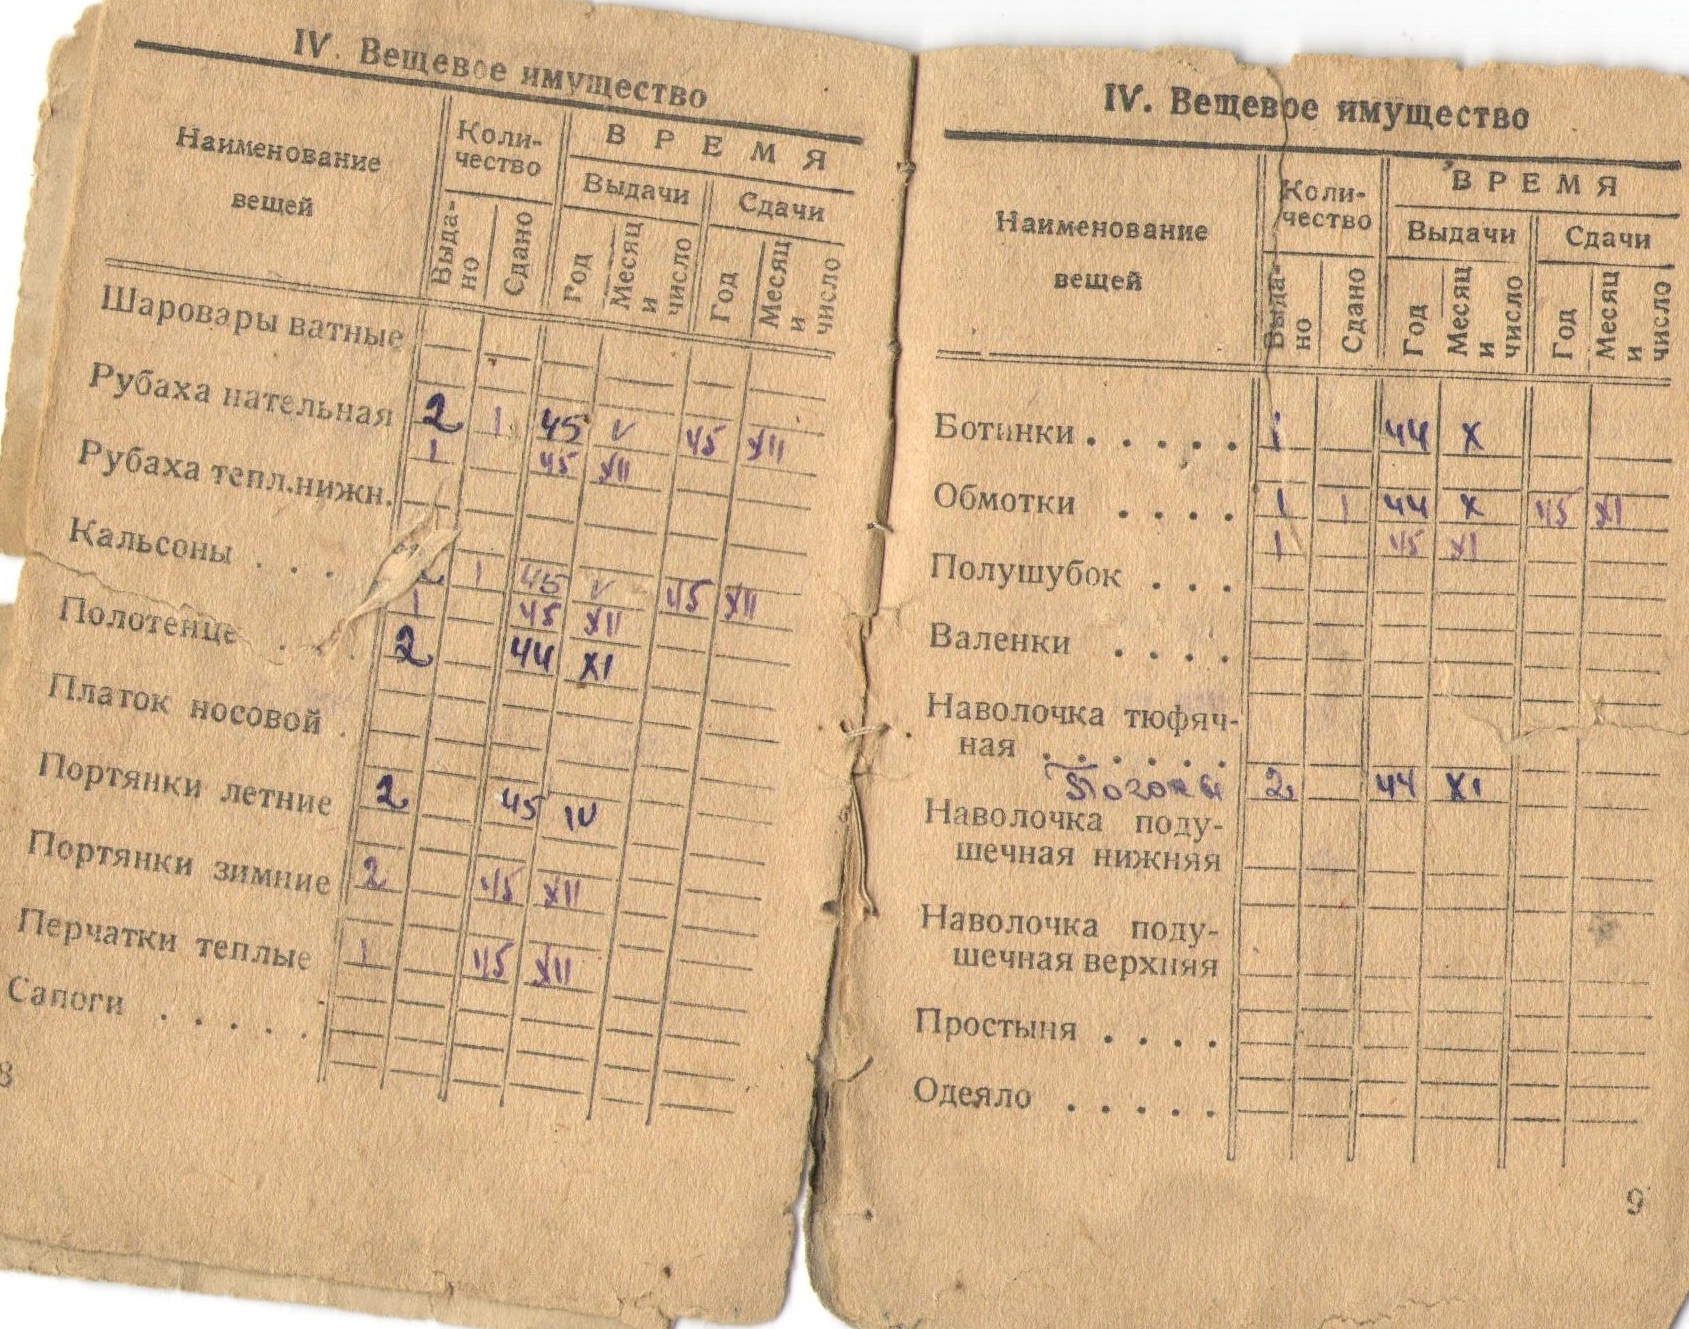 IV. Вещевое имущество
Наименование вещей
Количество
ВРЕМЯ
Выдачи
Сдачи
Выда-
но
Сдано
Год
Месяц
и
число
Год
Месяц
и
число
Шаровары ватные
Рубаха нательная 2 1 45 V 45 XII
1 45 XII
Рубаха тепл.нижн.
Кальсоны . . . 2 1 45 V 45 XII
1 45 XII
Полотенце . . . 2 44 XI
Платок носовой .
Портянки летние 2 45 IV
Портянки зимние 2 45 XII
Перчатки теплые 1 45 XII
Сапоги . . . . .
8
IV. Вещевое имущество
Наименование
вещей
Коли-
чество
ВРЕМЯ
Выдачи
Сдачи
Выда-
но
Сдано
Год
Месяц
и
число
Год
Месяц
и
число
Ботинки . . . . . 1 44 X
Обмотки . . . . 1 1 44 X 45 XI
1 45 XI
Полушубок . . .
Валенки . . . .
Наволочка тюфяч-
ная . . . . . .
Погоны 2 44 XI
Наволочка поду-
шечная нижняя
Наволочка поду-
шечная верхняя
Простыня . . . .
Одеяло . . . . .
9